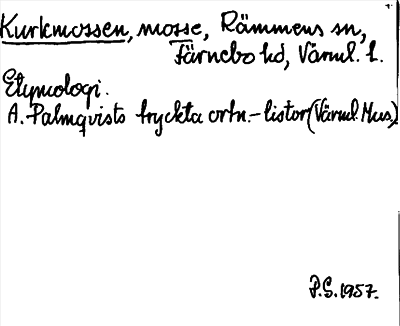 Kurkmossen, mosse, Rämmens sn,
Färnebo hd, Värml. l.
Etymologi.
A. Palmqvists tryckta ortn.-listor (Värml. Mus.)
P.S. 1957.